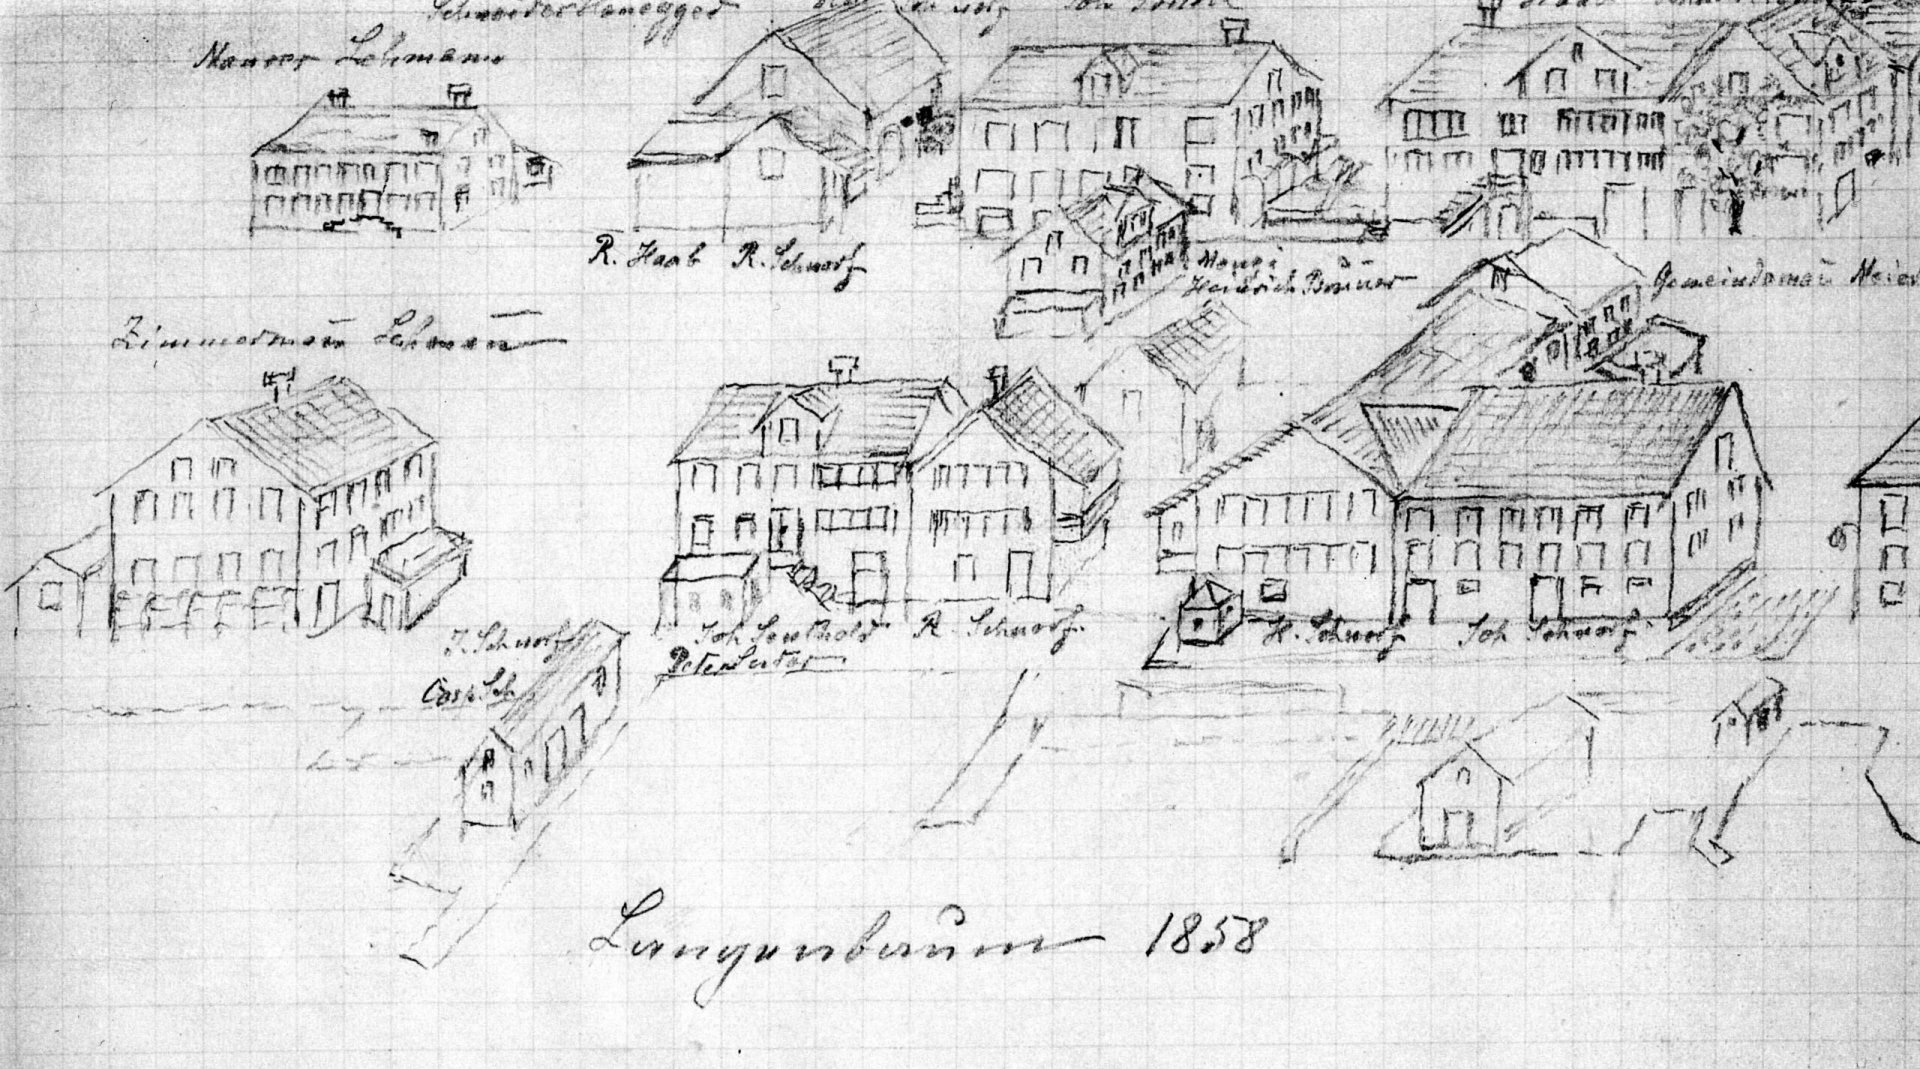 Schneider Honegger
Maurer Lehmann
R. Haab R. Schnorf
Heinrich Bruner
Gemeindamañ Meier
Zimmermañ Lehmañ
J. Schnorf
Casp. Sch
Joh Leuthold
Peter Suter
R. Schnorf
H. Schnorf
Joh Schnorf
Langenbaum 1858